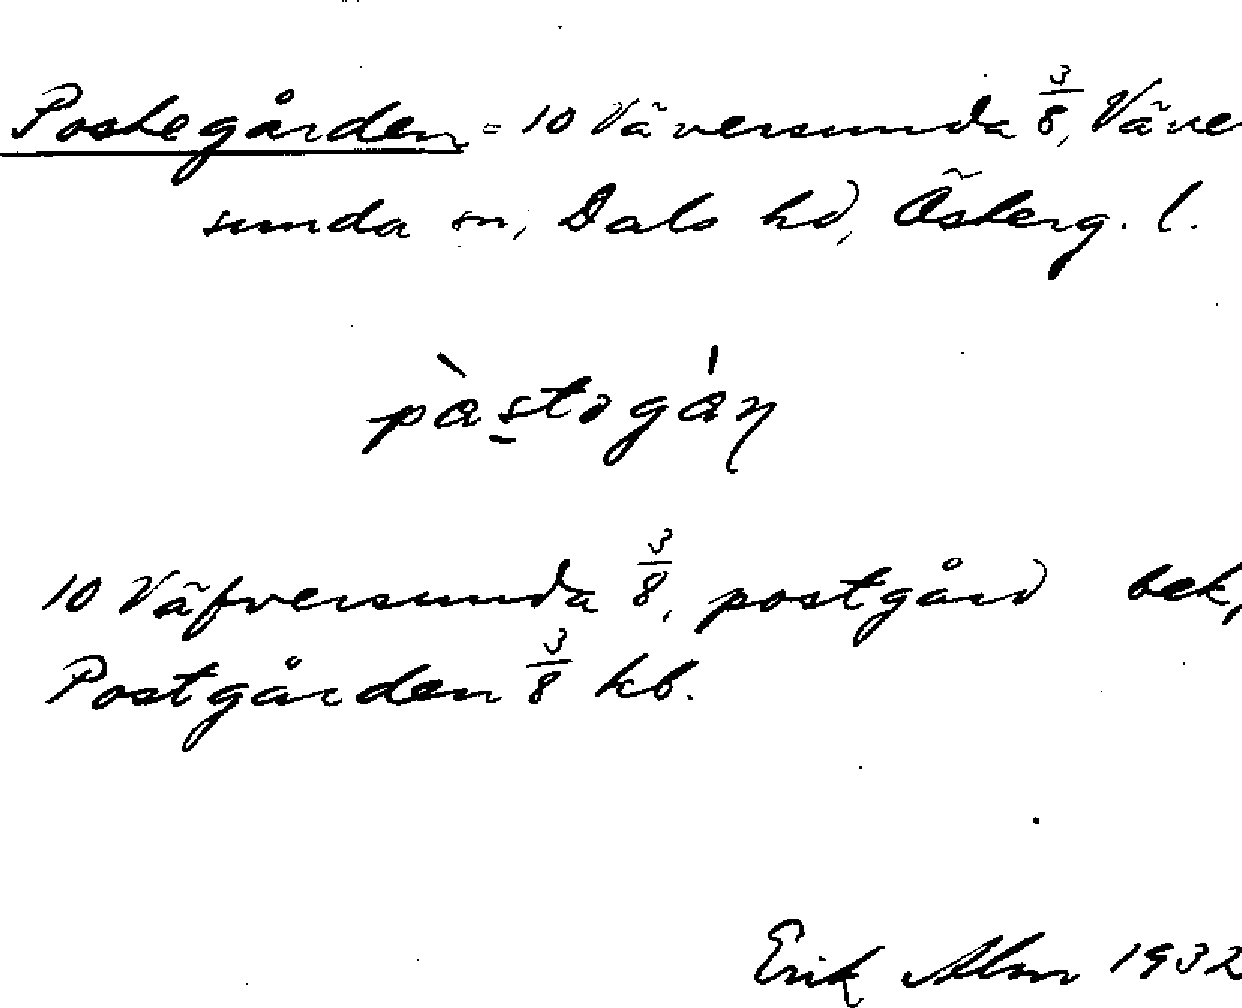 Postegården = 10 Väversunda 3/8, Väve
sunda sn, Dals hd, Österg. l.
pàstogán
10 Väfversunda 3/8, postgård bek,
Postgården 3/8 kb.
Erik Alm 1932